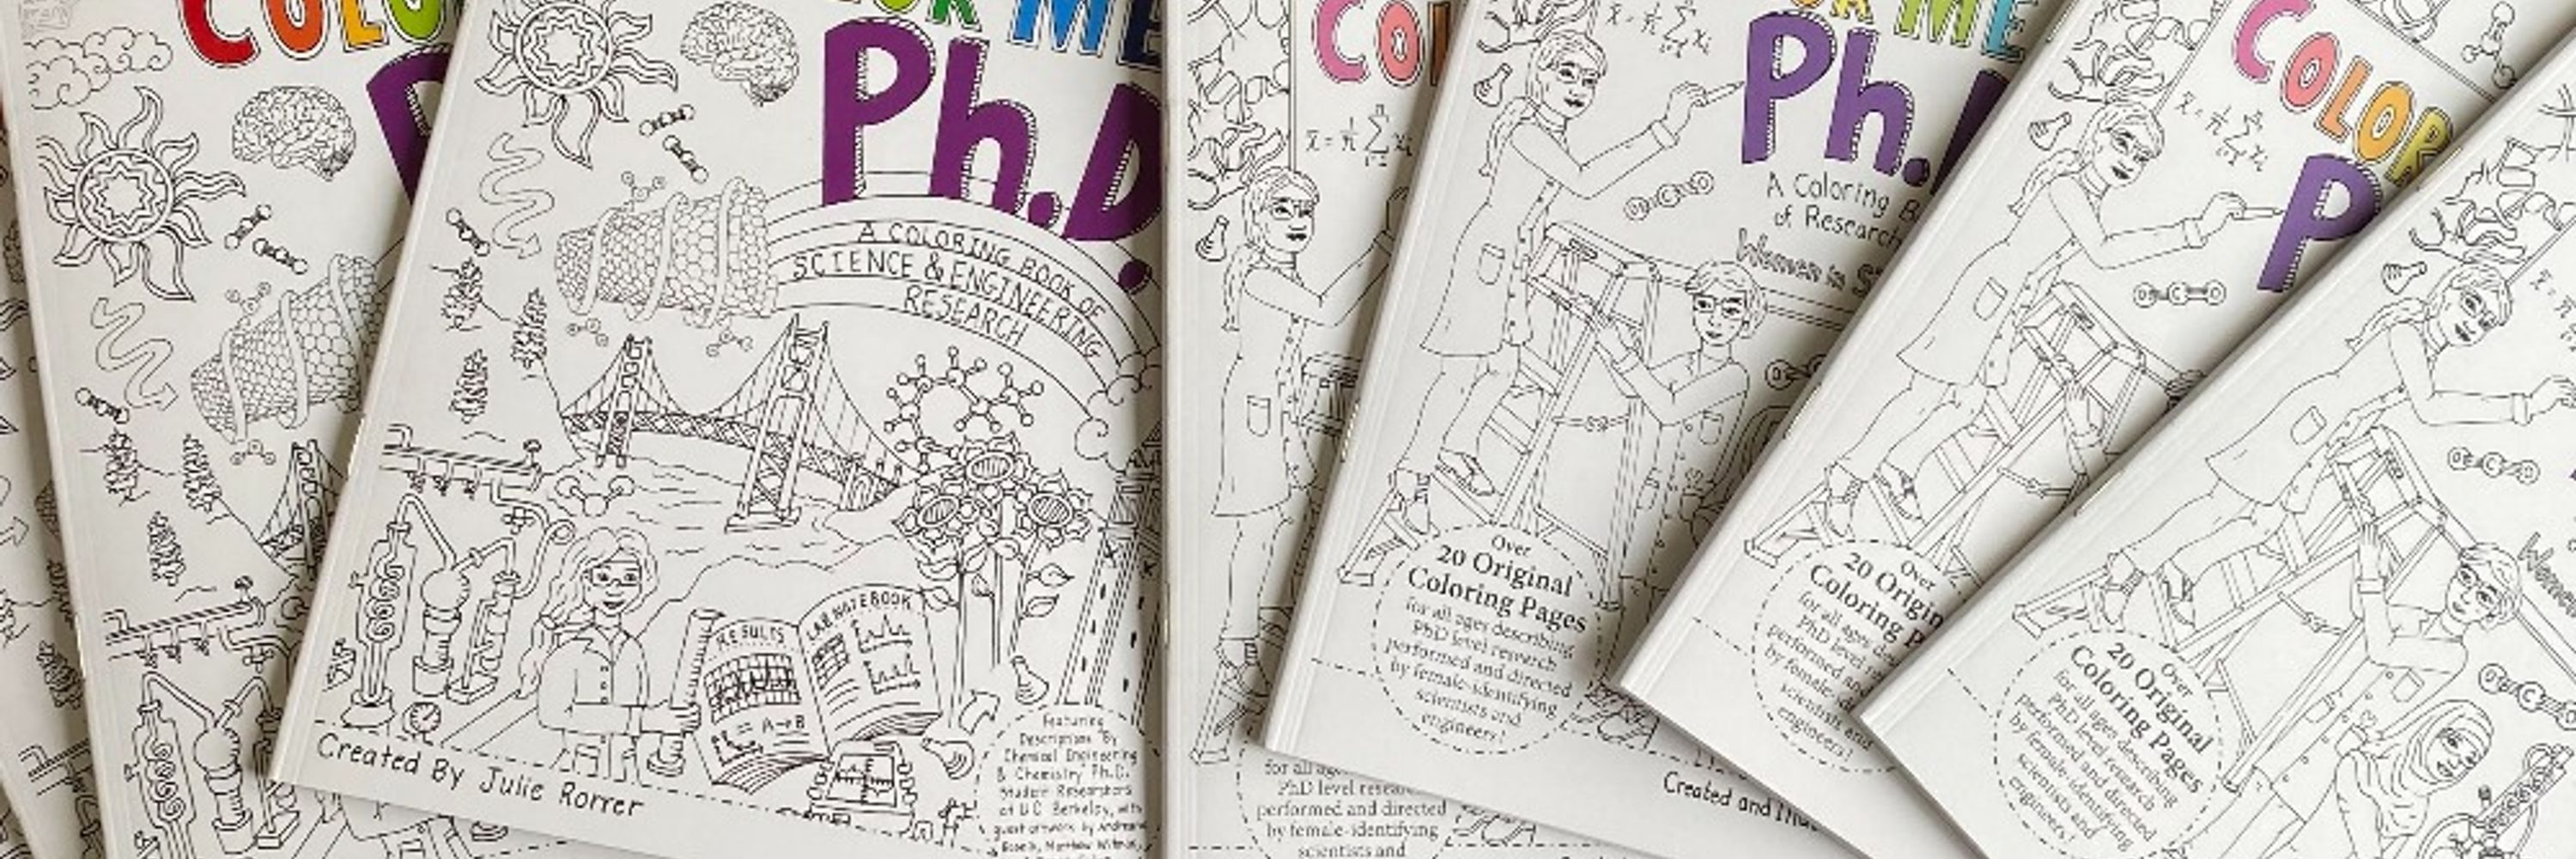 COLO
OR ME
Ph.D.
A COLORING BOOK OF
SCIENCE & ENGINEERING
RESEARCH
RESULTS
LAB NOTEBOOK
= A→B
Created By Julie Rorrer
Featuring
Descriptions By
Chemical Engineering
& Chemistry Ph.D.
Student Researchers
at UC Berkeley, with
guest artwork by
COL
x̄ = 1/n Σ xi
for all ages
PhD level research
performed and directed
by female-identifying
scientists and
OR ME
Ph.D
x̄ = 1/n Σ xi
A Coloring B
of Research
Women in S
Over
20 Original
Coloring Pages
for all ages describing
PhD level reserch
performed and directed
by female-identifying
scientists and
engineers!
Created and Illu
COLOR
P
x̄ = 1/n Σ xi
Over
20 Origin
Coloring P
for all ages de
PhD level re
performed and
by female-id
scientists and
engineers!
Women
Over
20 Original
Coloring Pages
for all ages describing
PhD level research
performed and directed
by female-identifying
scientists and
engineers!